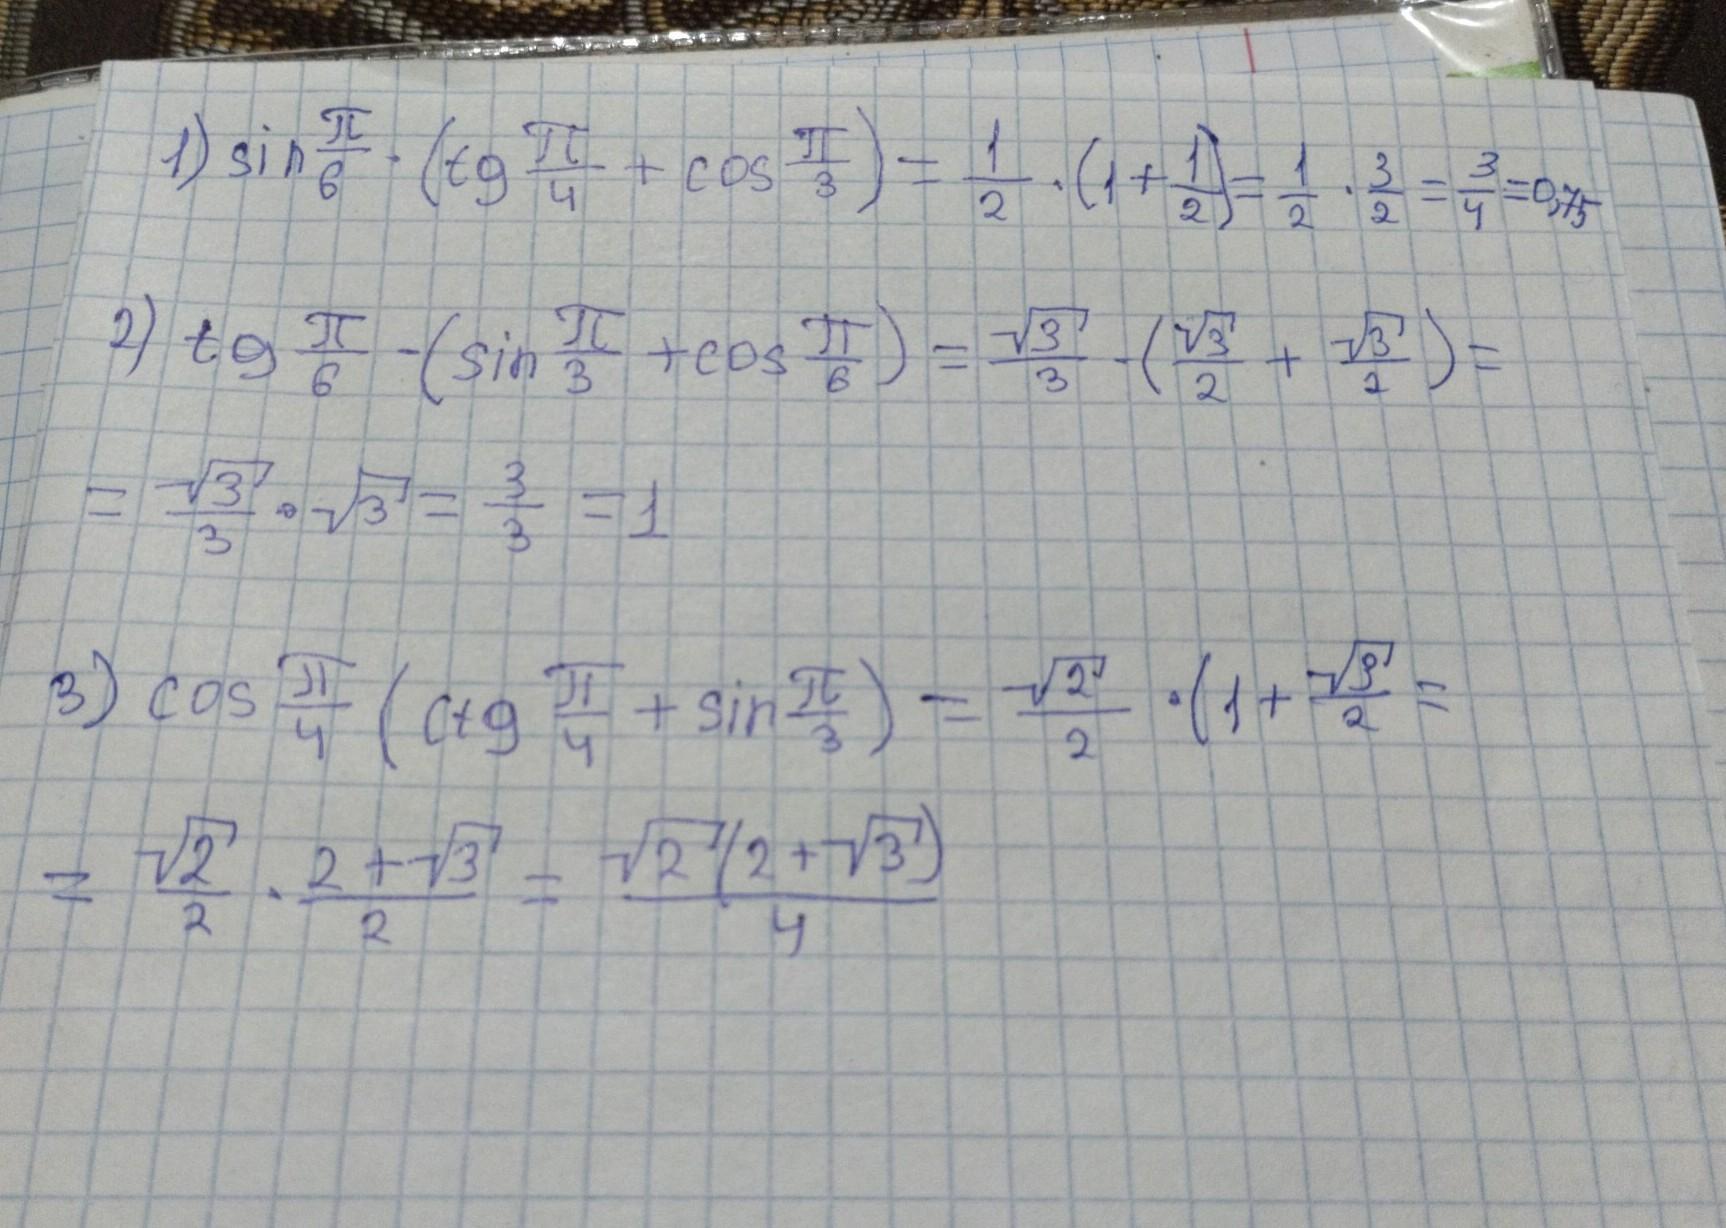 1) sin π/6 · (tg π/4 + cos π/3) = 1/2 · (1 + 1/2) = 1/2 · 3/2 = 3/4 = 0,75
2) tg π/6 · (sin π/3 + cos π/6) = √3/3 · (√3/2 + √3/2) =
= √3/3 · √3 = 3/3 = 1
3) cos π/4 (ctg π/4 + sin π/3) = √2/2 · (1 + √3/2 =
= √2/2 · 2 + √3/2 = √2(2 + √3)/4